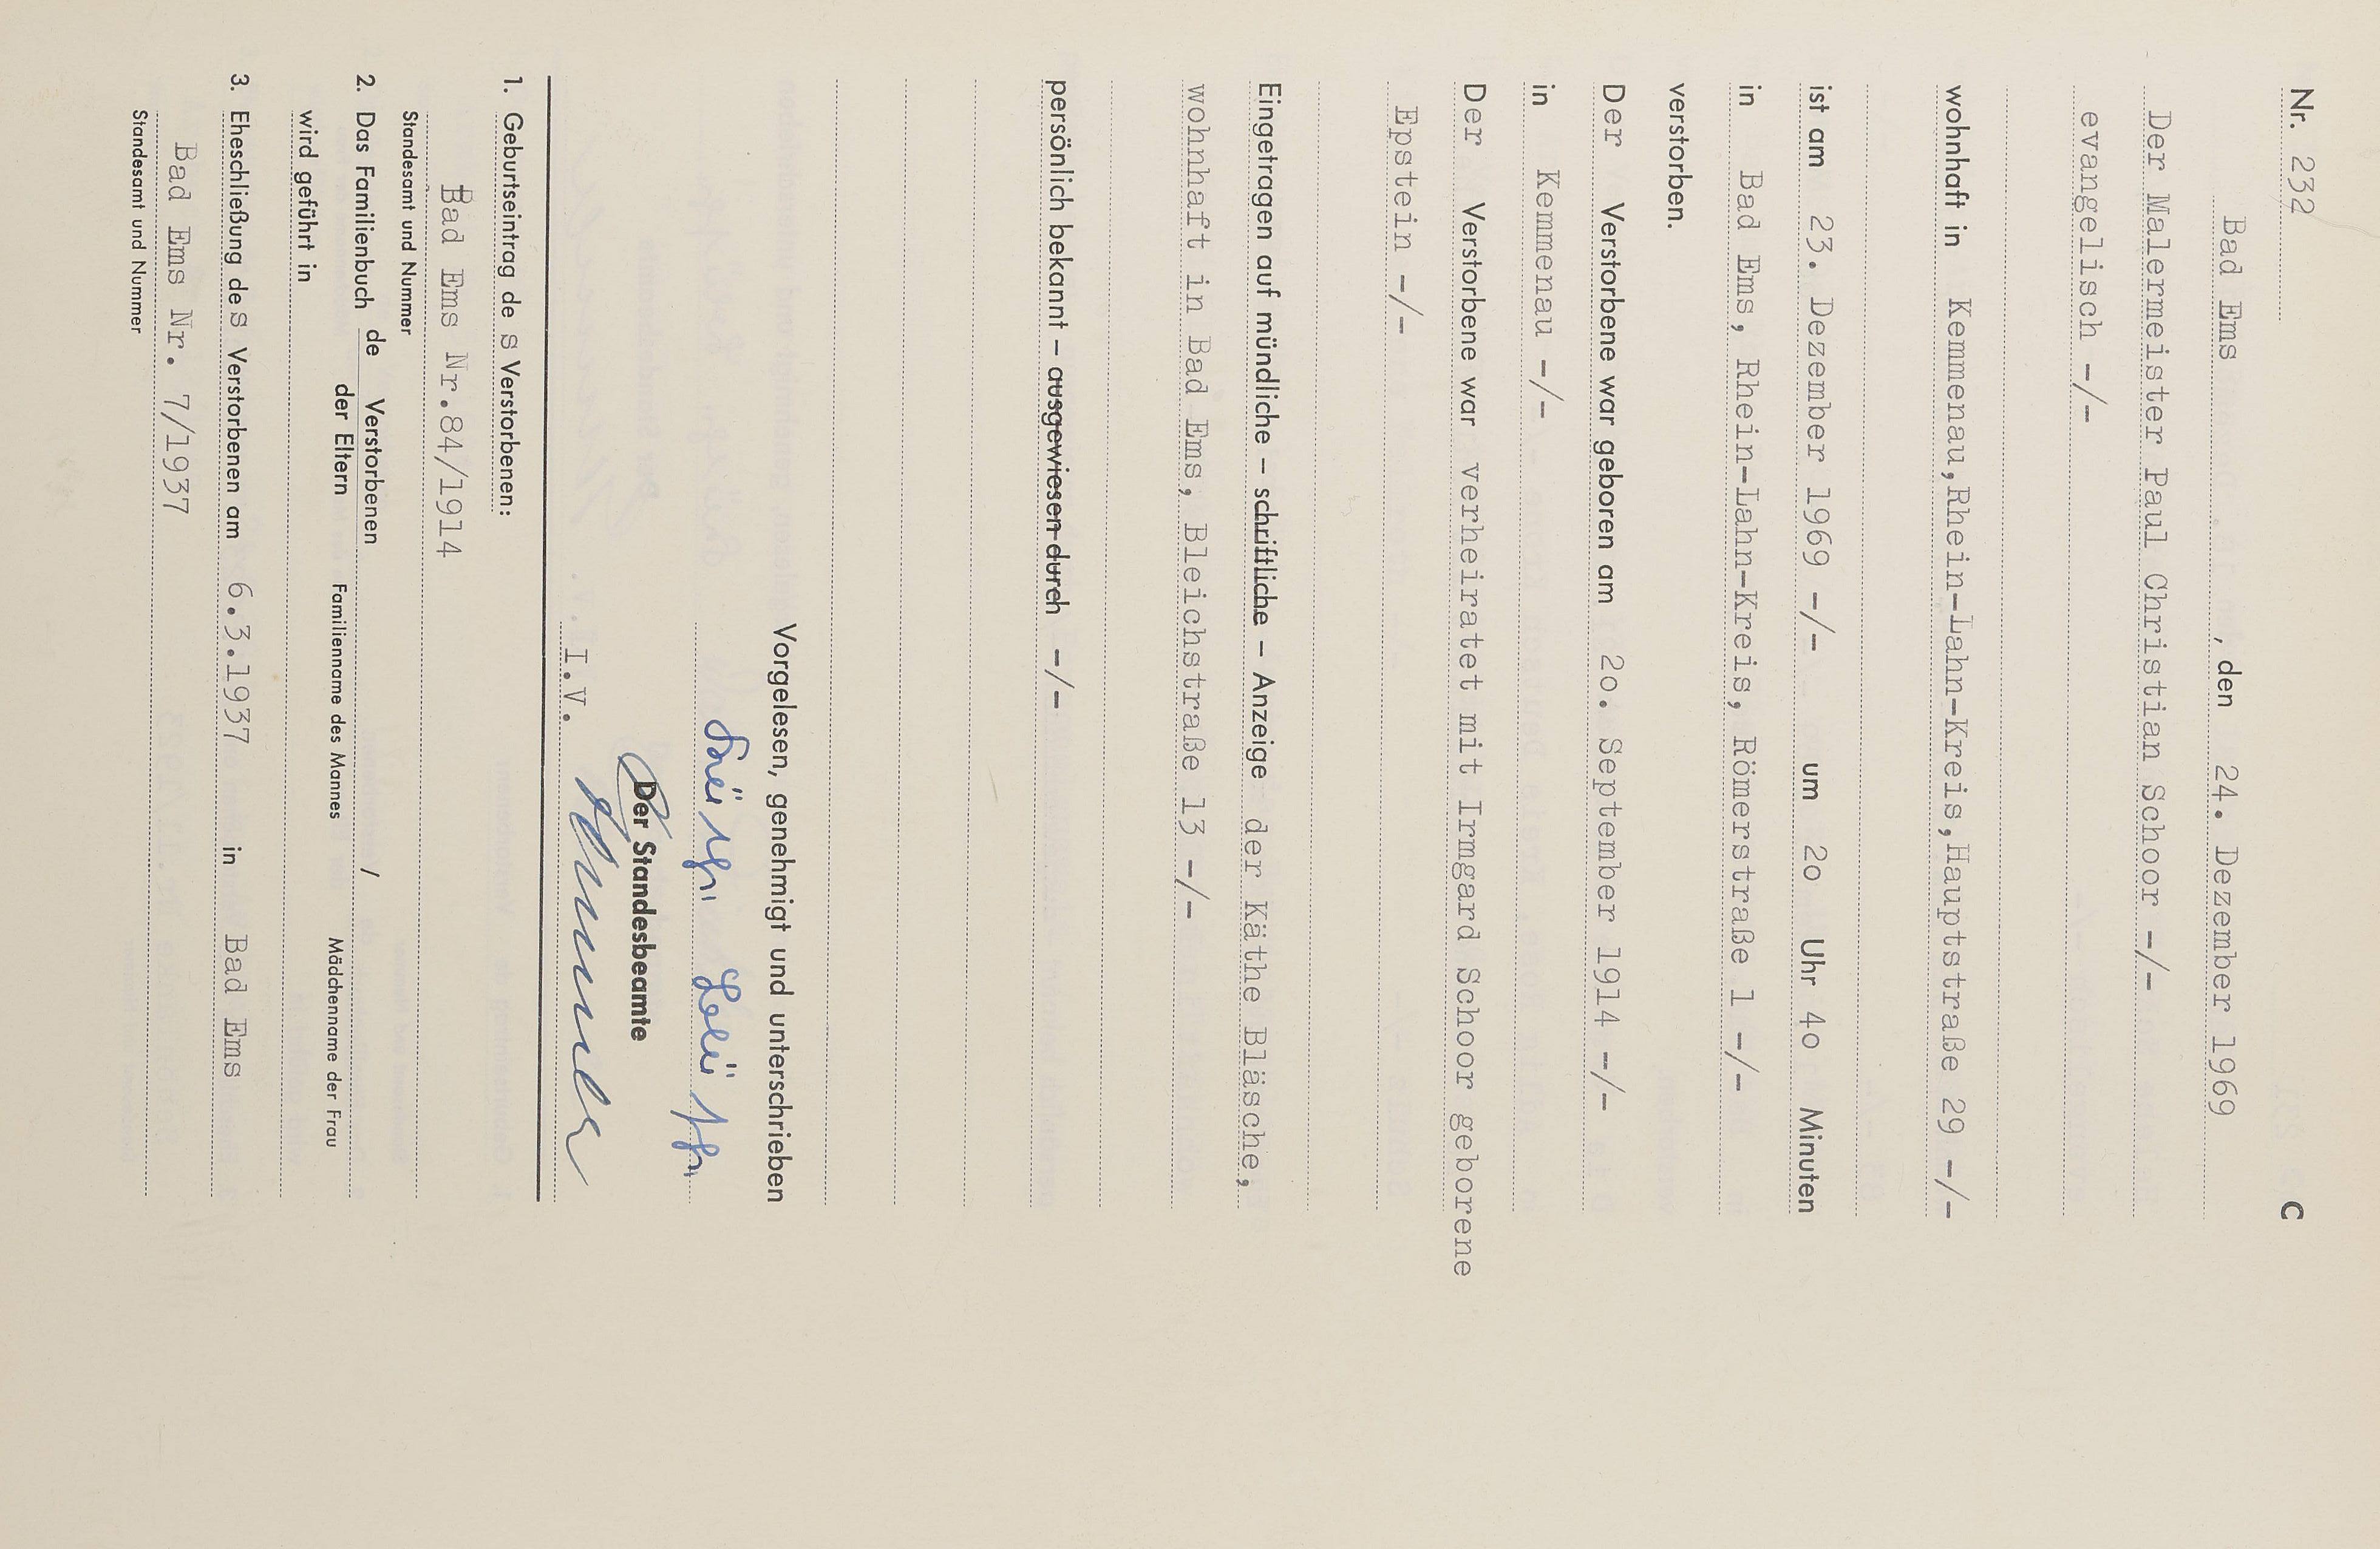 Nr. 232 C
Bad Ems, den 24. Dezember 1969
Der Malermeister Paul Christian Schoor -/-
evangelisch -/-
wohnhaft in Kemmenau,Rhein-Lahn-Kreis,Hauptstraße 29 -/-
ist am 23. Dezember 1969 -/- um 2o Uhr 4o Minuten
in Bad Ems, Rhein-Lahn-Kreis, Römerstraße 1 -/-
verstorben.
Der Verstorbene war geboren am 2o. September 1914 -/-
in Kemmenau -/-
Der Verstorbene war verheiratet mit Irmgard Schoor geborene
Epstein -/-
Eingetragen auf mündliche – schriftliche – Anzeige der Käthe Bläsche,
wohnhaft in Bad Ems, Bleichstraße 13 -/-
persönlich bekannt – ausgewiesen durch -/-
Vorgelesen, genehmigt und unterschrieben
Der Standesbeamte
I.V.
1. Geburtseintrag des Verstorbenen:
Bad Ems Nr.84/1914
Standesamt und Nummer
2. Das Familienbuch de Verstorbenen /
der Eltern Familienname des Mannes Mädchenname der Frau
wird geführt in
3. Eheschließung des Verstorbenen am 6.3.1937 in Bad Ems
Bad Ems Nr. 7/1937
Standesamt und Nummer